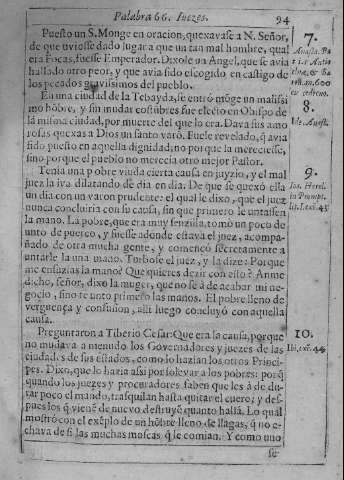 Palabra 66. Iuezes. 94
Puesto un S. Monge en oracion, quexavase a N. Señor,
de que uviesse dado lugar a que un tan mal hombre, qual
era Focas, fuesse Emperador. Dixole un Angel, que se avia
hallado otro peor, y que avia sido escogido en castigo de
los pecados gravissimos del pueblo.
En una ciudad de la Tebayda, se entró móge un malissi
mo hõbre, y sin mudar costũbres fue electo en Obispo de
la misma ciudad, por muerte del que lo era. Dava sus amo
rosas quexas a Dios un santo varõ. Fuele revelado, q̃ avia
sido puesto en aquella dignidad, no por que la mereciesse,
sino porque el pueblo no merecia otro mejor Pastor.
Tenia una pobre viuda cierta causa en juyzio, y el mal
juez la iva dilatando de dia en dia. De que se quexó ella
un dia con un varon prudente: el qual le dixo, que el juez
nunca concluiria con su causa, sin que primero le untassen
la mano. La pobre, que era muy senzilla, tomó un poco de
unto de puerco, y fuesse adonde estava el juez, acompa-
ñado de otra mucha gente, y començó secretamente a
untarle la una mano. Turbose el juez, y la dize: Porque
me ensuzias la mano? Que quieres dezir con esto? Anme
dicho, señor, dixo la muger, que no se à de acabar mi ne-
gocio, sino te unto primero las manos. El pobre lleno de
verguença y confusion, allí luego concluyó con aquella
causa.
Preguntaron a Tiberio Cesar: Que era la causa, porque
no mudava a menudo los Governadores y juezes de las
ciudades de sus estados, como lo hazian los otros Princi-
pes. Dixo, que lo hazia assi por solevar a los pobres: porq̃
quando los juezes y procuradores saben que les à de du-
rar poco el mando, trasquilan hasta quitar el cuero; y des-
pues los q̃ vienẽ de nuevo destruyẽ quanto hallã. Lo qual
mostró con el exẽplo de un hõbre lleno de llagas, q̃ no e-
chava de si las muchas moscas q̃ se comian. Y como uno
se
7.
8.
9.
10.